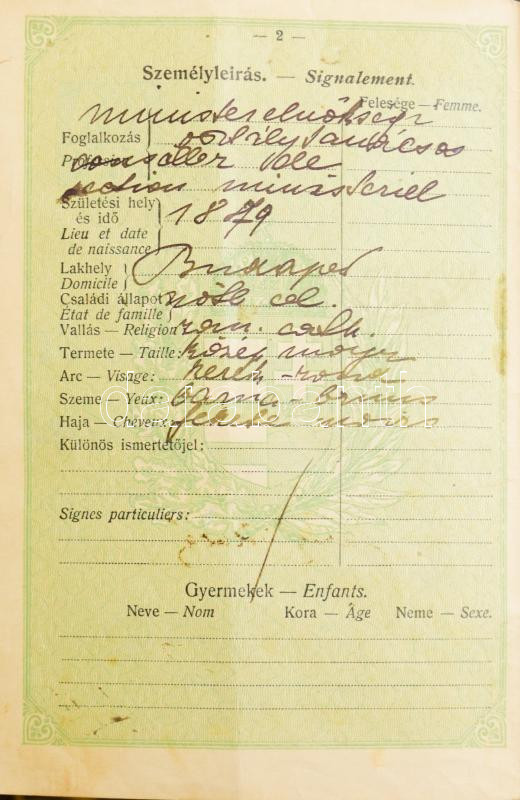 — 2 —
Személyleírás. — Signalement.
Felesége — Femme.
miniszterelnökségi
Foglalkozás osztálytanácsos
Profession conseiller de
section ministériel
Születési hely és idő 1879
Lieu et date de naissance
Lakhely Budapest
Domicile
Családi állapot nős cél.
État de famille
Vallás — Religion róm. cath.
Termete — Taille: közép moyen
Arc — Visage: kerek - rond
Szeme — Yeux: barna - bruns
Haja — Cheveux: fekete noirs
Különös ismertetőjel:
Signes particuliers:
Gyermekek — Enfants.
Neve — Nom Kora — Âge Neme — Sexe.
darabanth